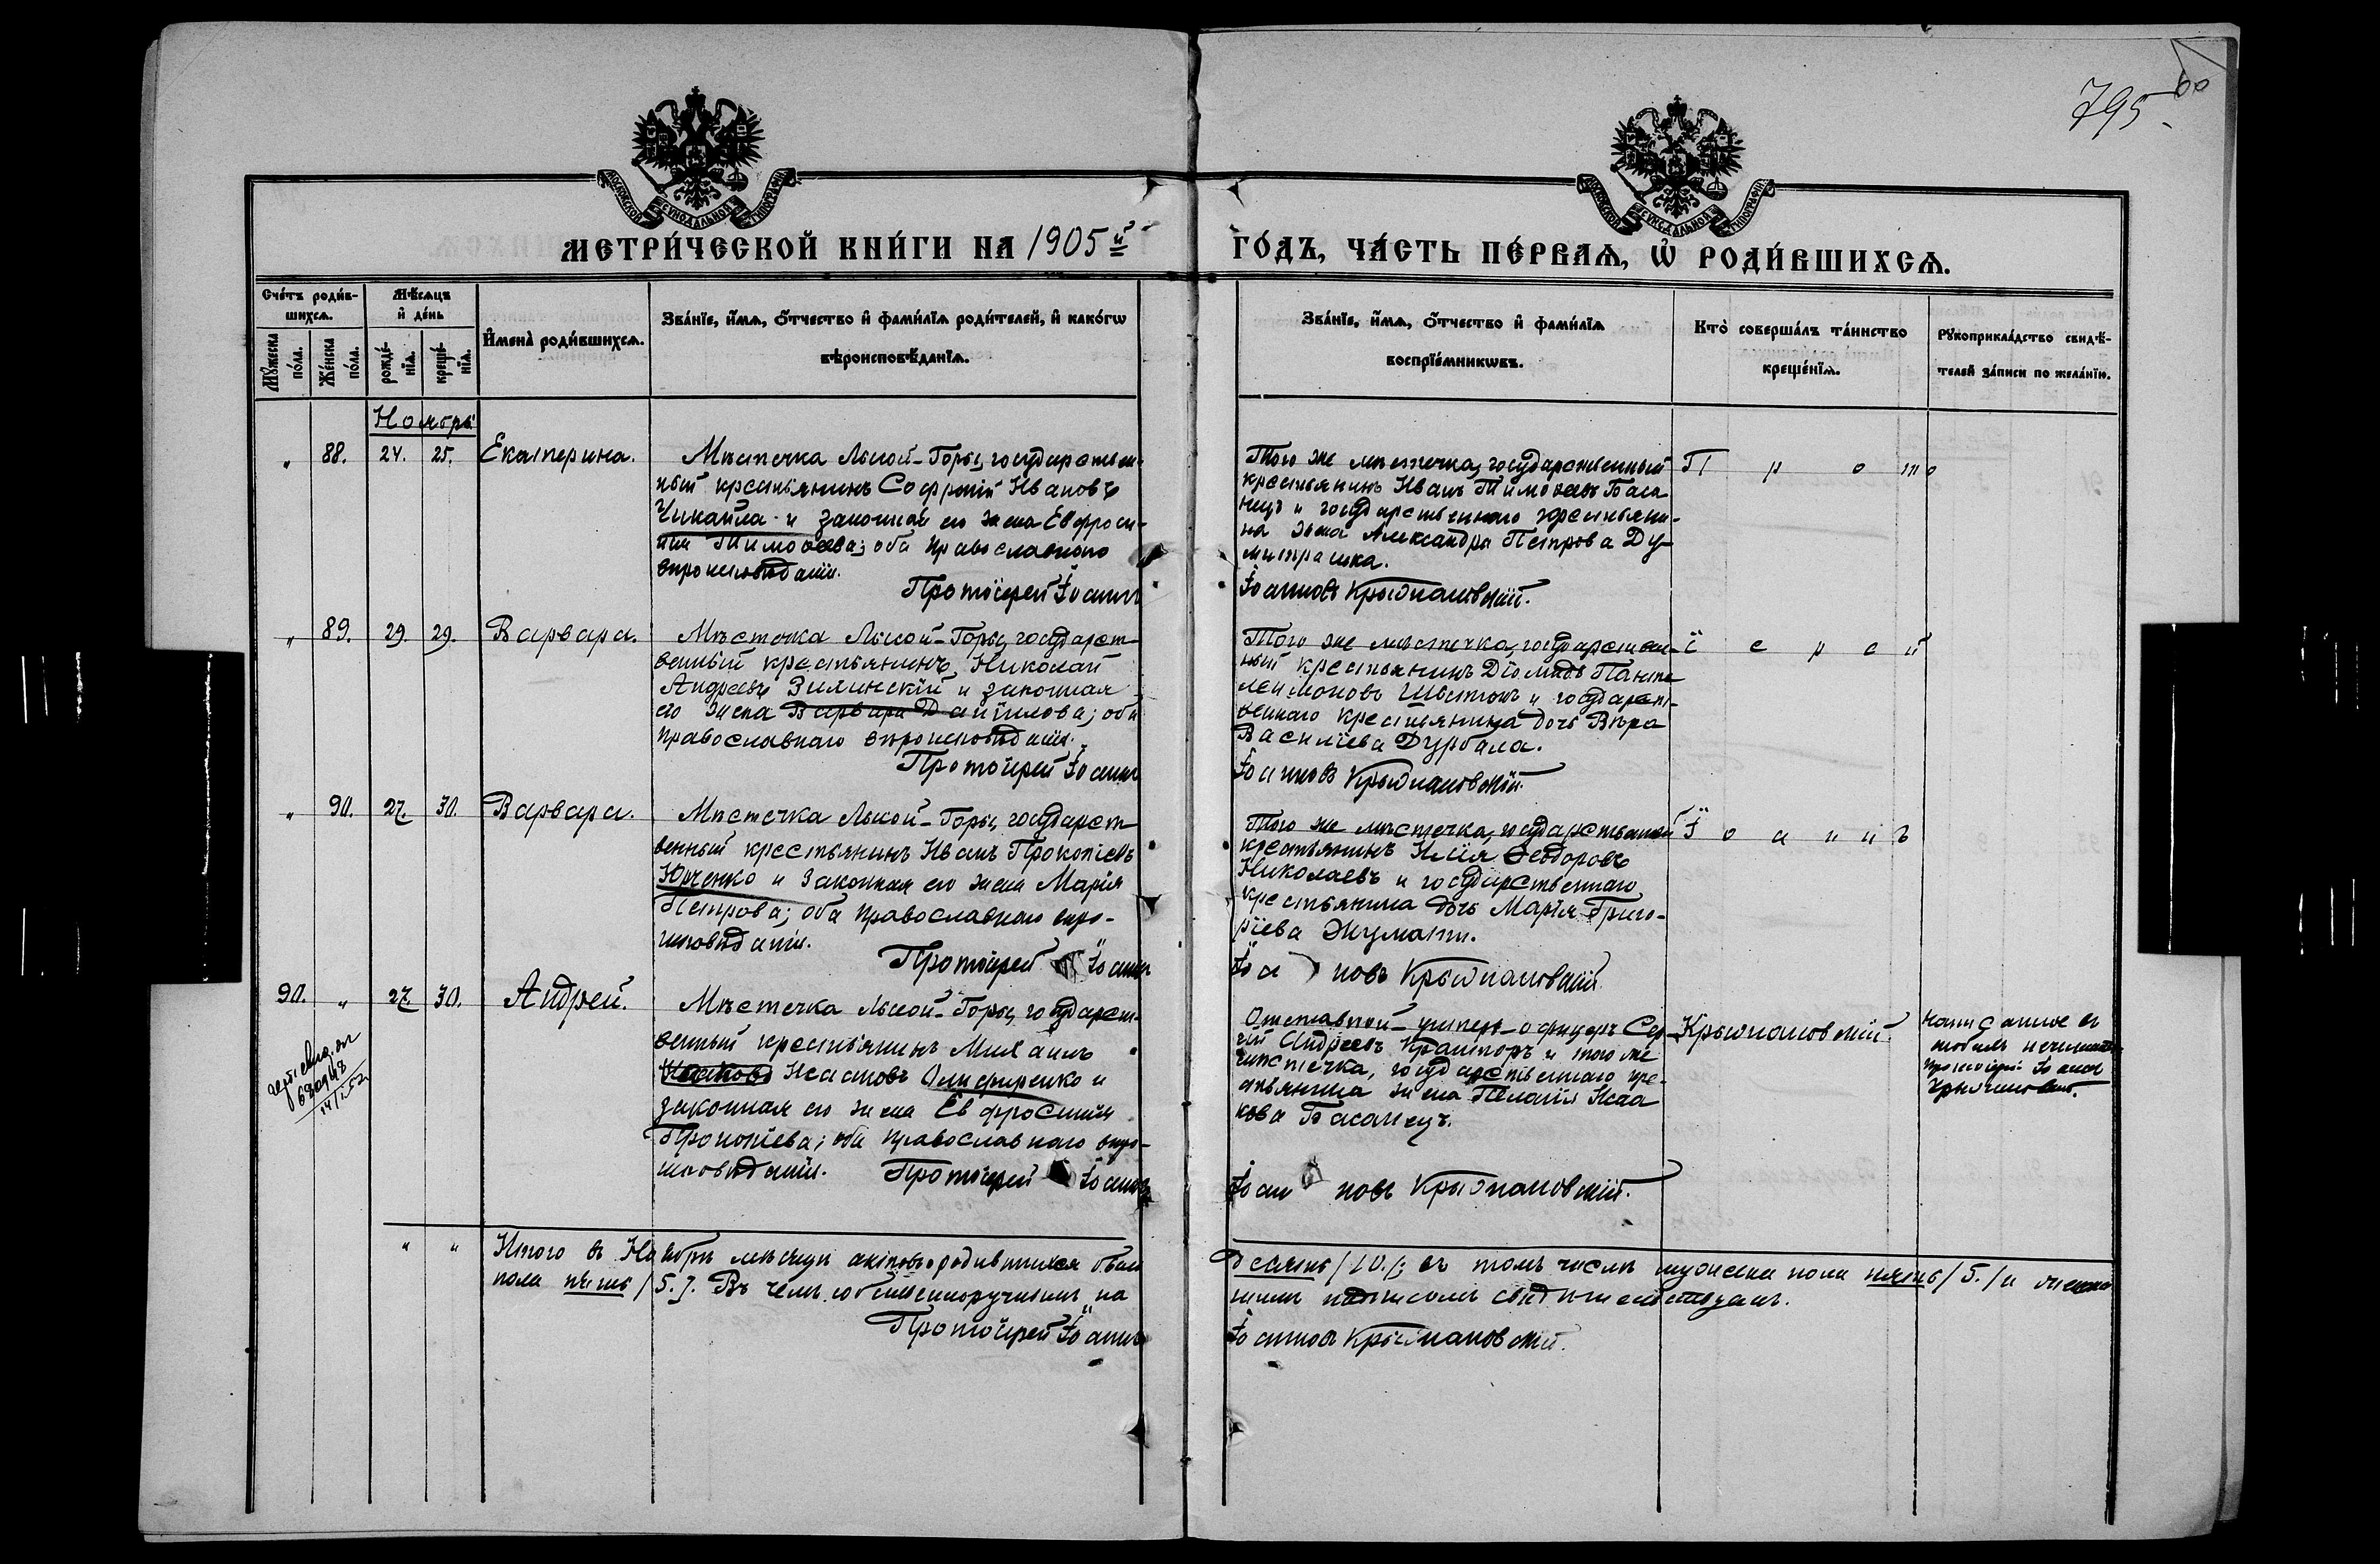 795
60
МОСКОВСКОЙ СѴНОДАЛЬНОЙ ТИПОГРАФІИ
МОСКОВСКОЙ СѴНОДАЛЬНОЙ ТИПОГРАФІИ
МЕТРИ́ЧЕСКОЙ КНИ́ГИ НА 1905й
ГО́ДЪ, ЧА́СТЬ ПЕ́РВАѦ, Ѡ҆ РОДИ́ВШИХСѦ.
Сче́тъ роди́в-
шихсѧ.
Мꙋ́жеска по́ла.
Же́нска по́ла.
Мѣ́сѧцъ
и҆ де́нь
рожде́-нїѧ.
креще́-нїѧ.
И҆мена̀ роди́вшихсѧ.
Зва́нїе, и҆́мѧ, ѻ҆́тчество и҆ фамї́лїѧ роди́телей, и҆ како́гѡ
вѣроисповѣ́данїѧ.
Зва́нїе, и҆́мѧ, ѻ҆́тчество и҆ фамї́лїѧ
воспрїе́мникѡвъ.
Кто̀ соверша́лъ та́инство
креще́нїѧ.
Рꙋкоприкла́дство свидѣ́-
телей за́писи по жела́нїю.
Ноябрь
" 88. 24. 25. Екатерина.
Мѣстечка Лысой-Горы, государствен-
ный крестьянинъ Софроній Ивановъ
Чикайла и законная его жена Евфроси-
нія Тимоѳеева; оба православнаго
вѣроисповѣданія.
Протоіерей Іоаннъ
Того же мѣстечка, государственный
крестьянинъ Иванъ Тимоѳеевъ Баса
нецъ и государственнаго крестьяни-
на жена Александра Петрова Ду-
митрашка.
Іоанновъ Крыжановскій.
Прото
" 89. 29. 29. Варвара.
Мѣстечка Лысой-Горы, государст-
венный крестьянинъ Николай
Андреевъ Зилинскій и законная
его жена Варвара Даніилова; оба
православнаго вѣроисповѣданія.
Протоіерей Іоаннъ
Того же мѣстечка, государствен-
ный крестьянинъ Діомидъ Панте
леимоновъ и государст-
веннаго крестьянина дочь Вѣра
Василіева Дурбала.
Іоанновъ Крыжановскій.
іерей
" 90. 27. 30. Варвара.
Мѣстечка Лысой-Горы, государст-
венный крестьянинъ Иванъ Прокопіевъ
Юрченко и законная его жена Марія
Петрова; оба православнаго вѣро-
исповѣданія.
Протоіерей Іоаннъ
Того же мѣстечка, государственный
крестьянинъ Илія Ѳеодоровъ
Николаевъ и государственнаго
крестьянина дочь Марія Григо-
ріева
Іоа новъ Крыжановскій
Іоаннъ
90. " 27. 30. Андрей.
14/I.52
Мѣстечка Лысой-Горы, государст-
венный крестьянинъ Михаилъ
Исааковъ Олиференко и
законная его жена Евфросинія
Прокопіева; оба православнаго вѣро-
исповѣданія. Протоіерей Іоаннъ
Отставной унтеръ-офицеръ Сер
гій Андреевъ и того же
мѣстечка, государственнаго кре-
стьянина жена Пелагія Исаа
кова Басанецъ.
Іоан новъ Крыжановскій.
Крыжановскій.
протоіерей Іоаннъ
Крыжановскій.
" " Итого въ Ноябрѣ мѣсяцѣ актовъ о родившихся обоего
пола пять /5./. Въ чемъ собственноручнымъ на
Протоіерей Іоаннъ
десять /10./; въ томъ числѣ мужеска пола пять /5./ и женска
шимъ подписомъ свидѣтельствуемъ.
Іоанновъ Крыжановскій.